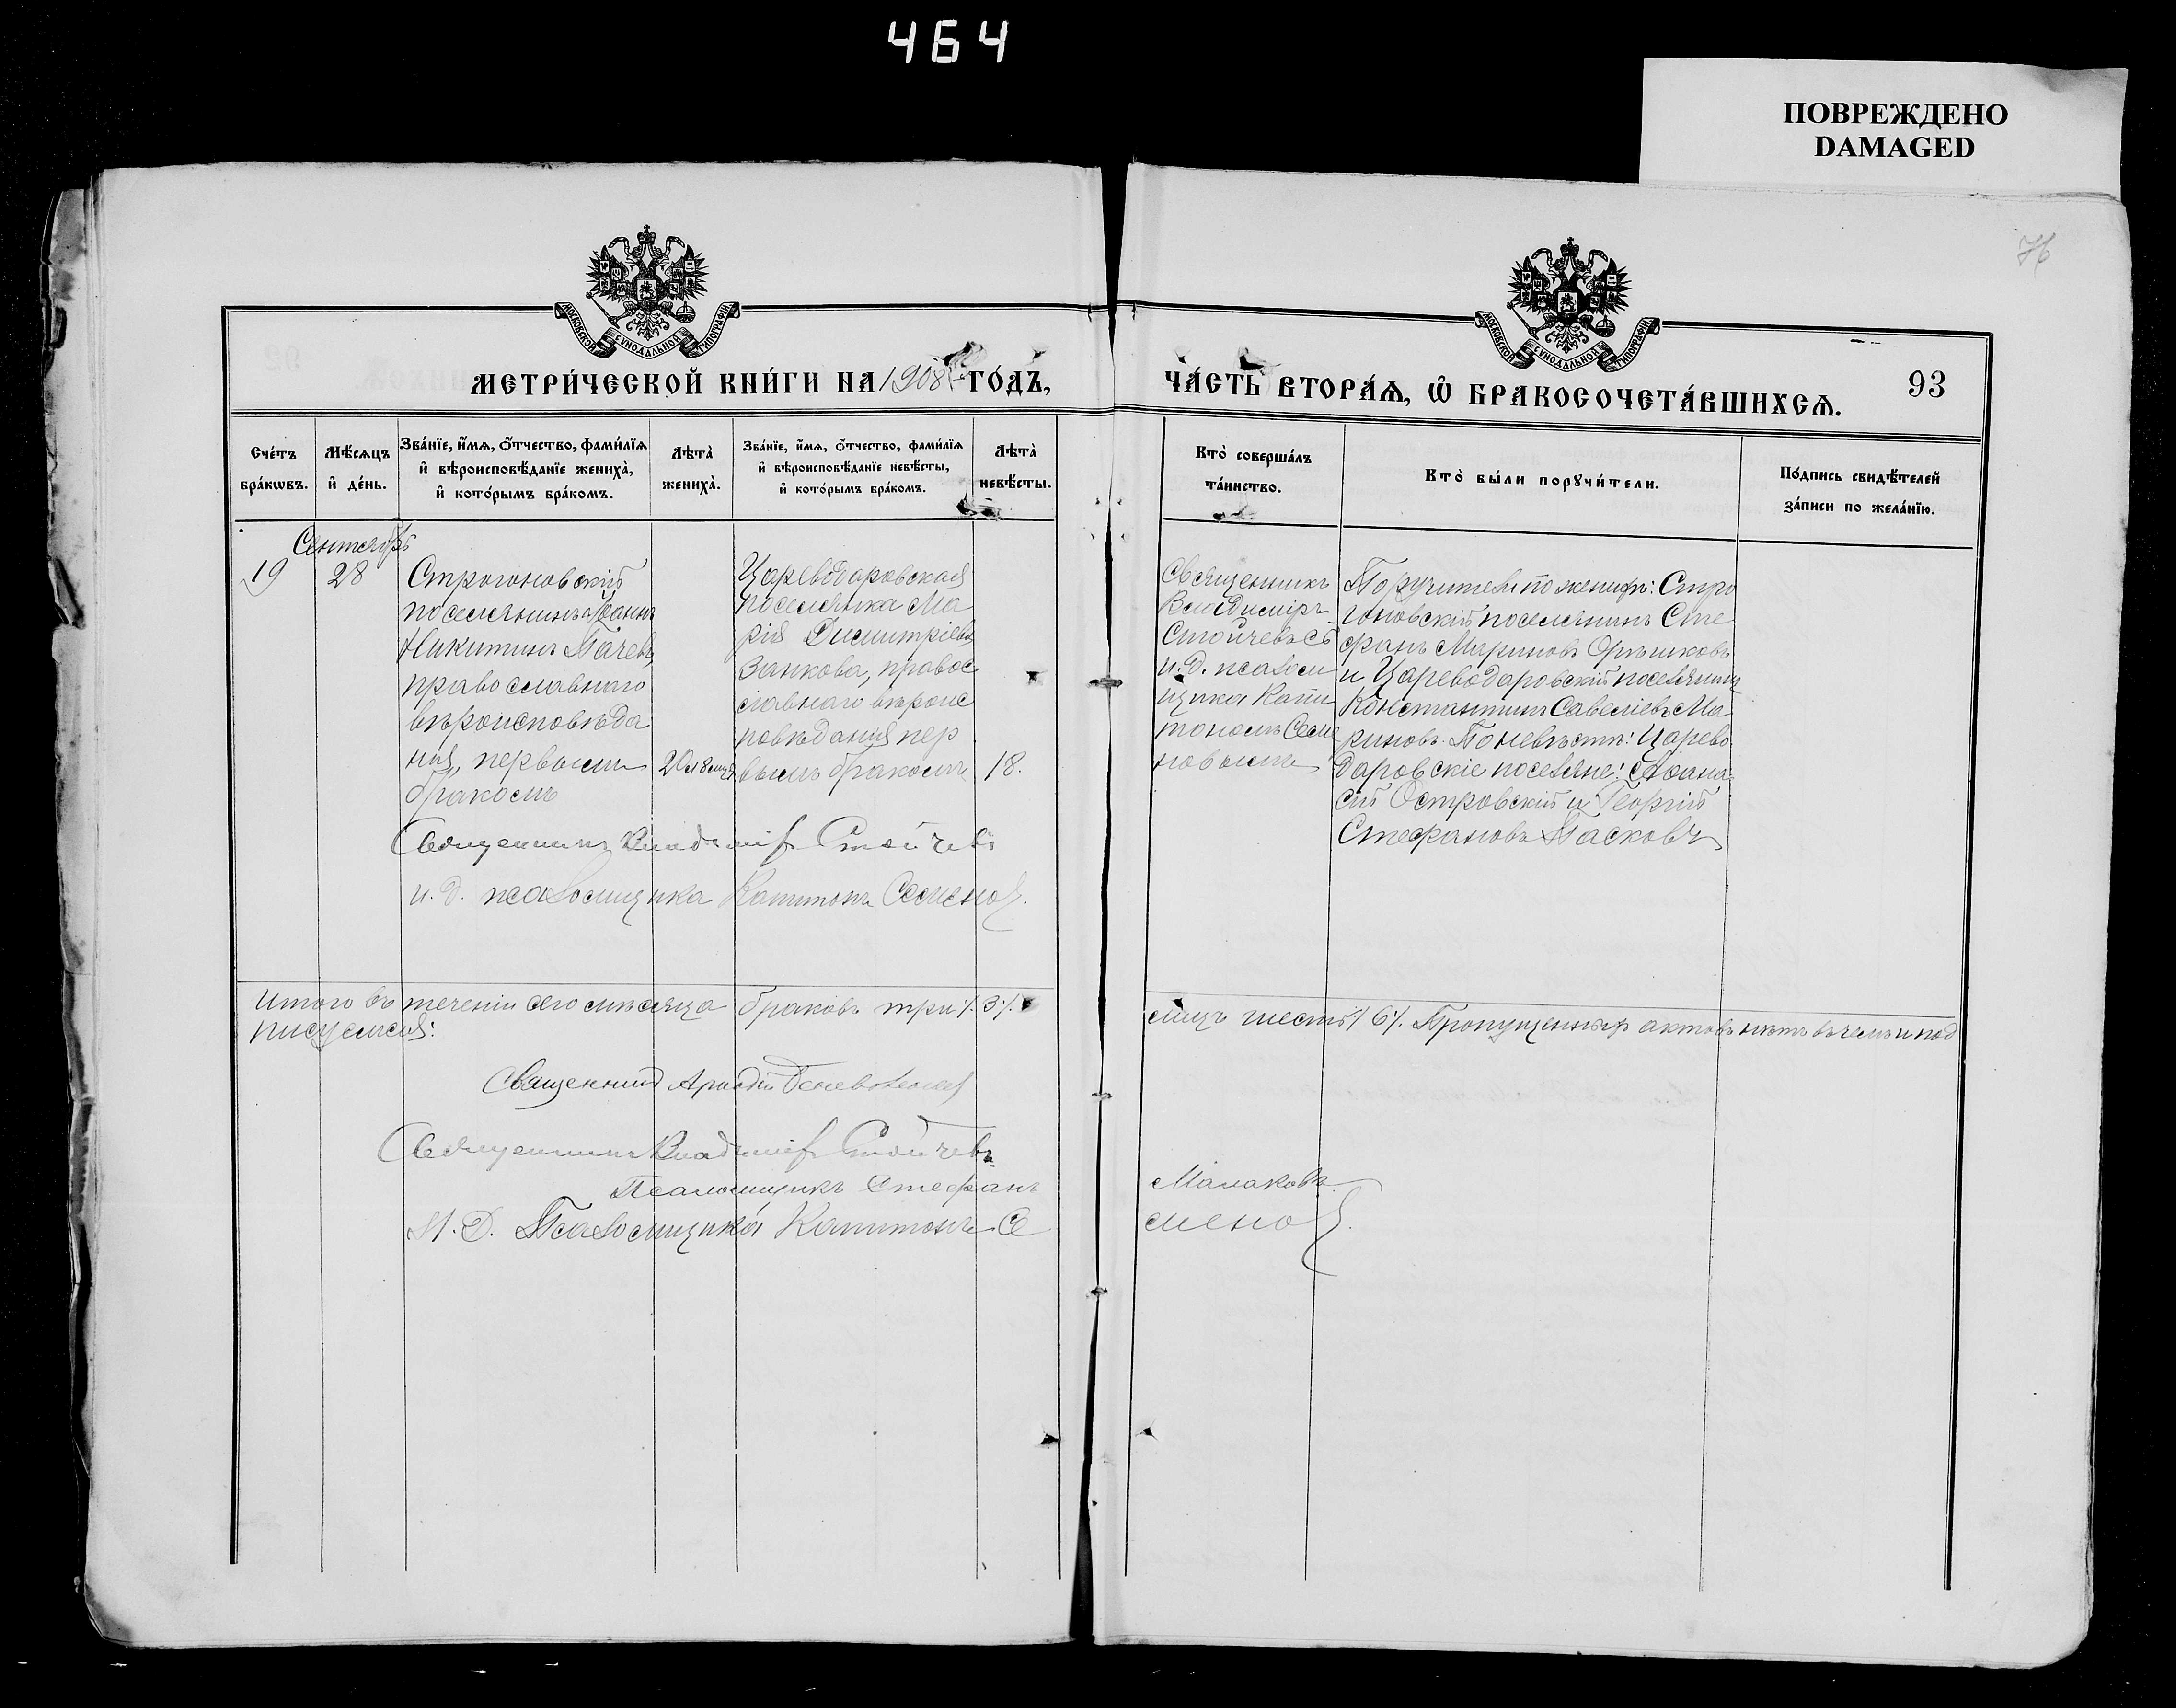 464
ПОВРЕЖДЕНО
DAMAGED
МОСКОВСКОЙ СѴНОДАЛЬНОЙ ТИПОГРАФІИ
МОСКОВСКОЙ СѴНОДАЛЬНОЙ ТИПОГРАФІИ
МЕТРИ́ЧЕСКОЙ КНИ́ГИ НА 1908 ГО́ДЪ,
ЧА́СТЬ ВТОРА́Ѧ, Ѽ БРАКОСОЧЕТА́ВШИХСѦ.
93
Сче́тъ бра́кωвъ.
Мѣ́сѧцъ и҆ де́нь.
Зва́нїе, и҆́мѧ, ѻ҆́тчество, фами́лїѧ и҆ вѣроисповѣ́данїе жениха̀, и҆ кото́рымъ бра́комъ.
Лѣта̀ жениха̀.
Зва́нїе, и҆́мѧ, ѻ҆́тчество, фами́лїѧ и҆ вѣроисповѣ́данїе невѣ́сты, и҆ кото́рымъ бра́комъ.
Лѣта̀ невѣ́сты.
Кто̀ соверша́лъ та́инство.
Кто̀ бы́ли порꙋчи́тели.
По́дпись свидѣ́телей за́писи по жела́нїю.
Сентябрь
19
28
Строгоновскій
поселянинъ Іоаннъ
Никитинъ Пачевъ,
православнаго
вѣроисповѣда
нія, первымъ
бракомъ
20 и 8 мцъ
Цареводаровская
поселянка Ма
рія Димитріева
Занкова, правос
славнаго вѣроис
повѣданія пер
вымъ бракомъ
18.
Священникъ
Владиміръ
Стойчевъ съ
и.д. псалом
щика Капи
тономъ Семе
новымъ
Поручители по женихѣ: Стро
гоновскій поселянинъ Сте
фанъ Мариновъ Орѣшковъ
и Цареводаровскій поселянинъ
Константинъ Савеліевъ Ма
риновъ. По невѣстѣ: Царево
даровскіе поселяне: Аѳана
сій Островскій и Георгій
Стефановъ Пасковъ
Священникъ Владиміръ Стойчевъ
и. д. псаломщика Капитонъ Семенов.
Итого въ теченіи сего мѣсяца браковъ три ./. 3 ./.
мицъ шесть ./. 6 ./. Пропущенныхъ актовъ нѣтъ въ чемъ и под
писуемся:
Священникъ
Священникъ Владиміръ Стойчевъ
Псаломщикъ Стефанъ Малаковъ
И. Д. Псаломщика Капитонъ Се
менов.